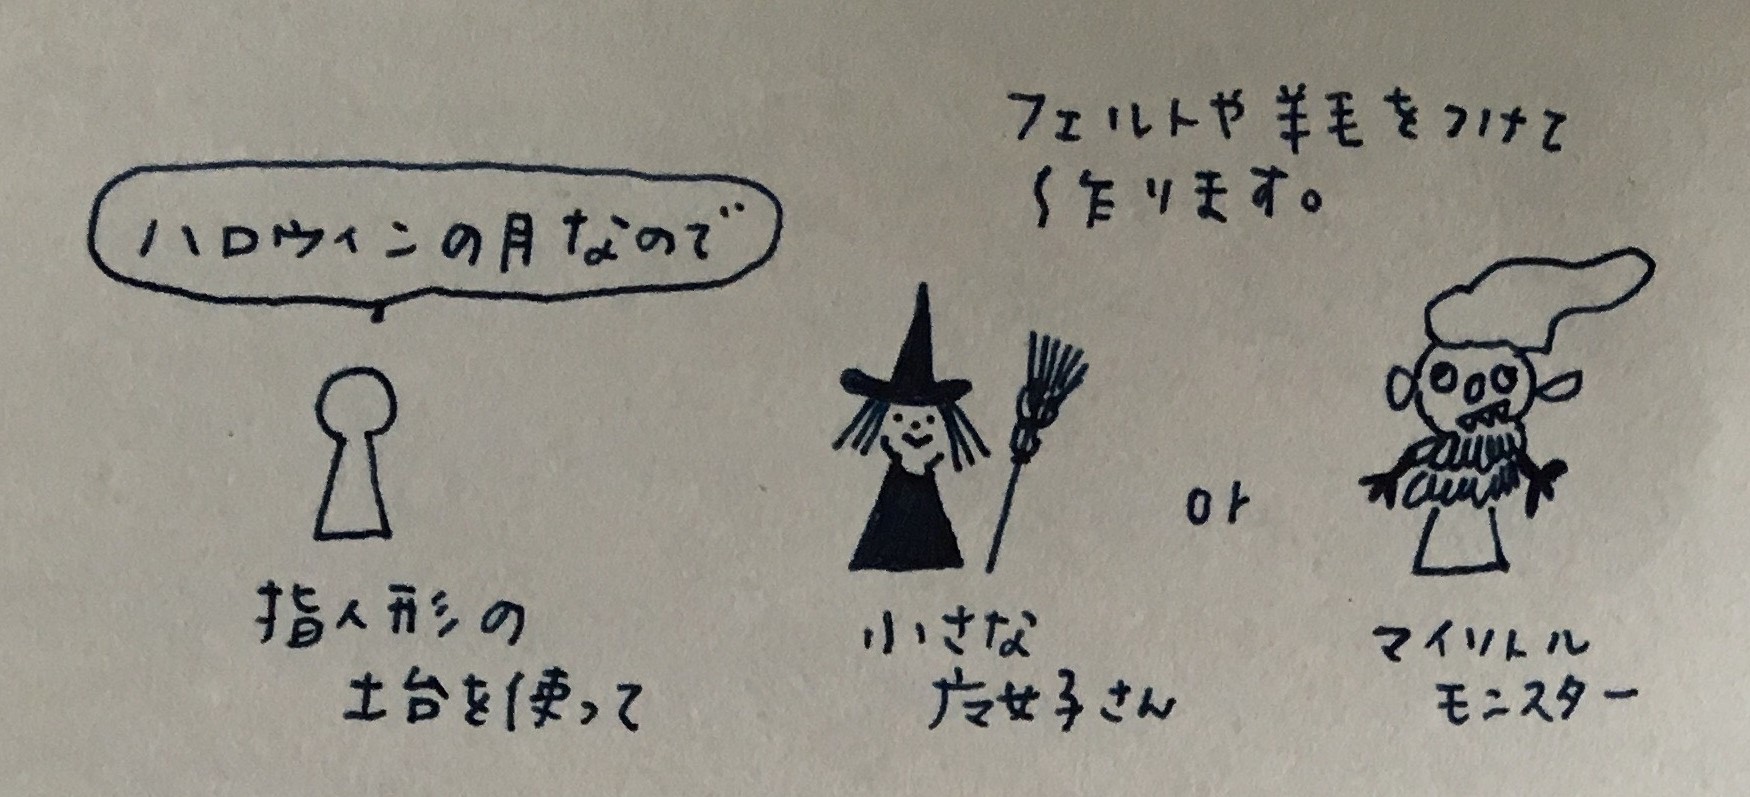 ハロウィンの月なので
指人形の
土台を使って
フェルトや羊毛をつけて
作ります。
小さな
魔女子さん
or
マイリトル
モンスター